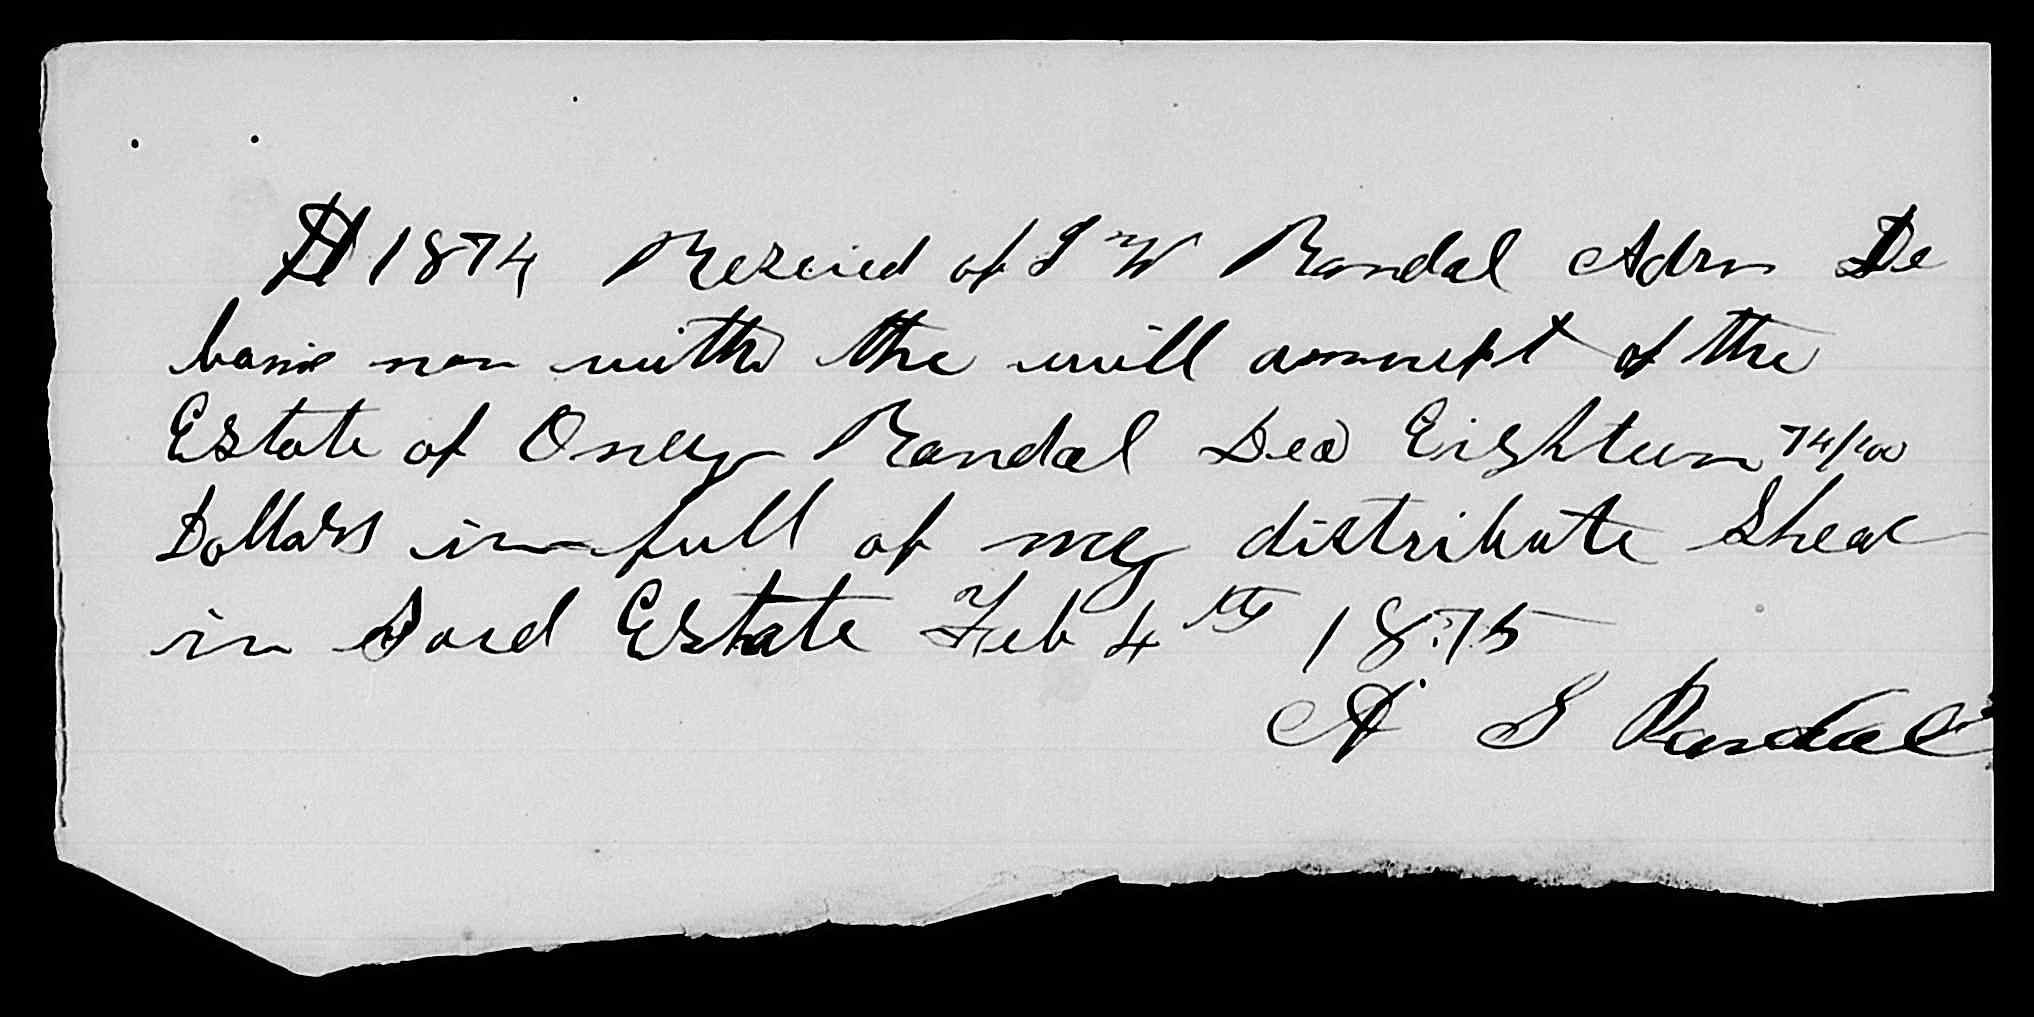 $ 1874 Rezeied of I W Randal Adrm De
bonis non with the will annext of the
Estate of Oney Randal Dea Eighteen 74/100
Dollars in full of my distribute Shear
in Said Estate Feb 4th 1875
A S Randal